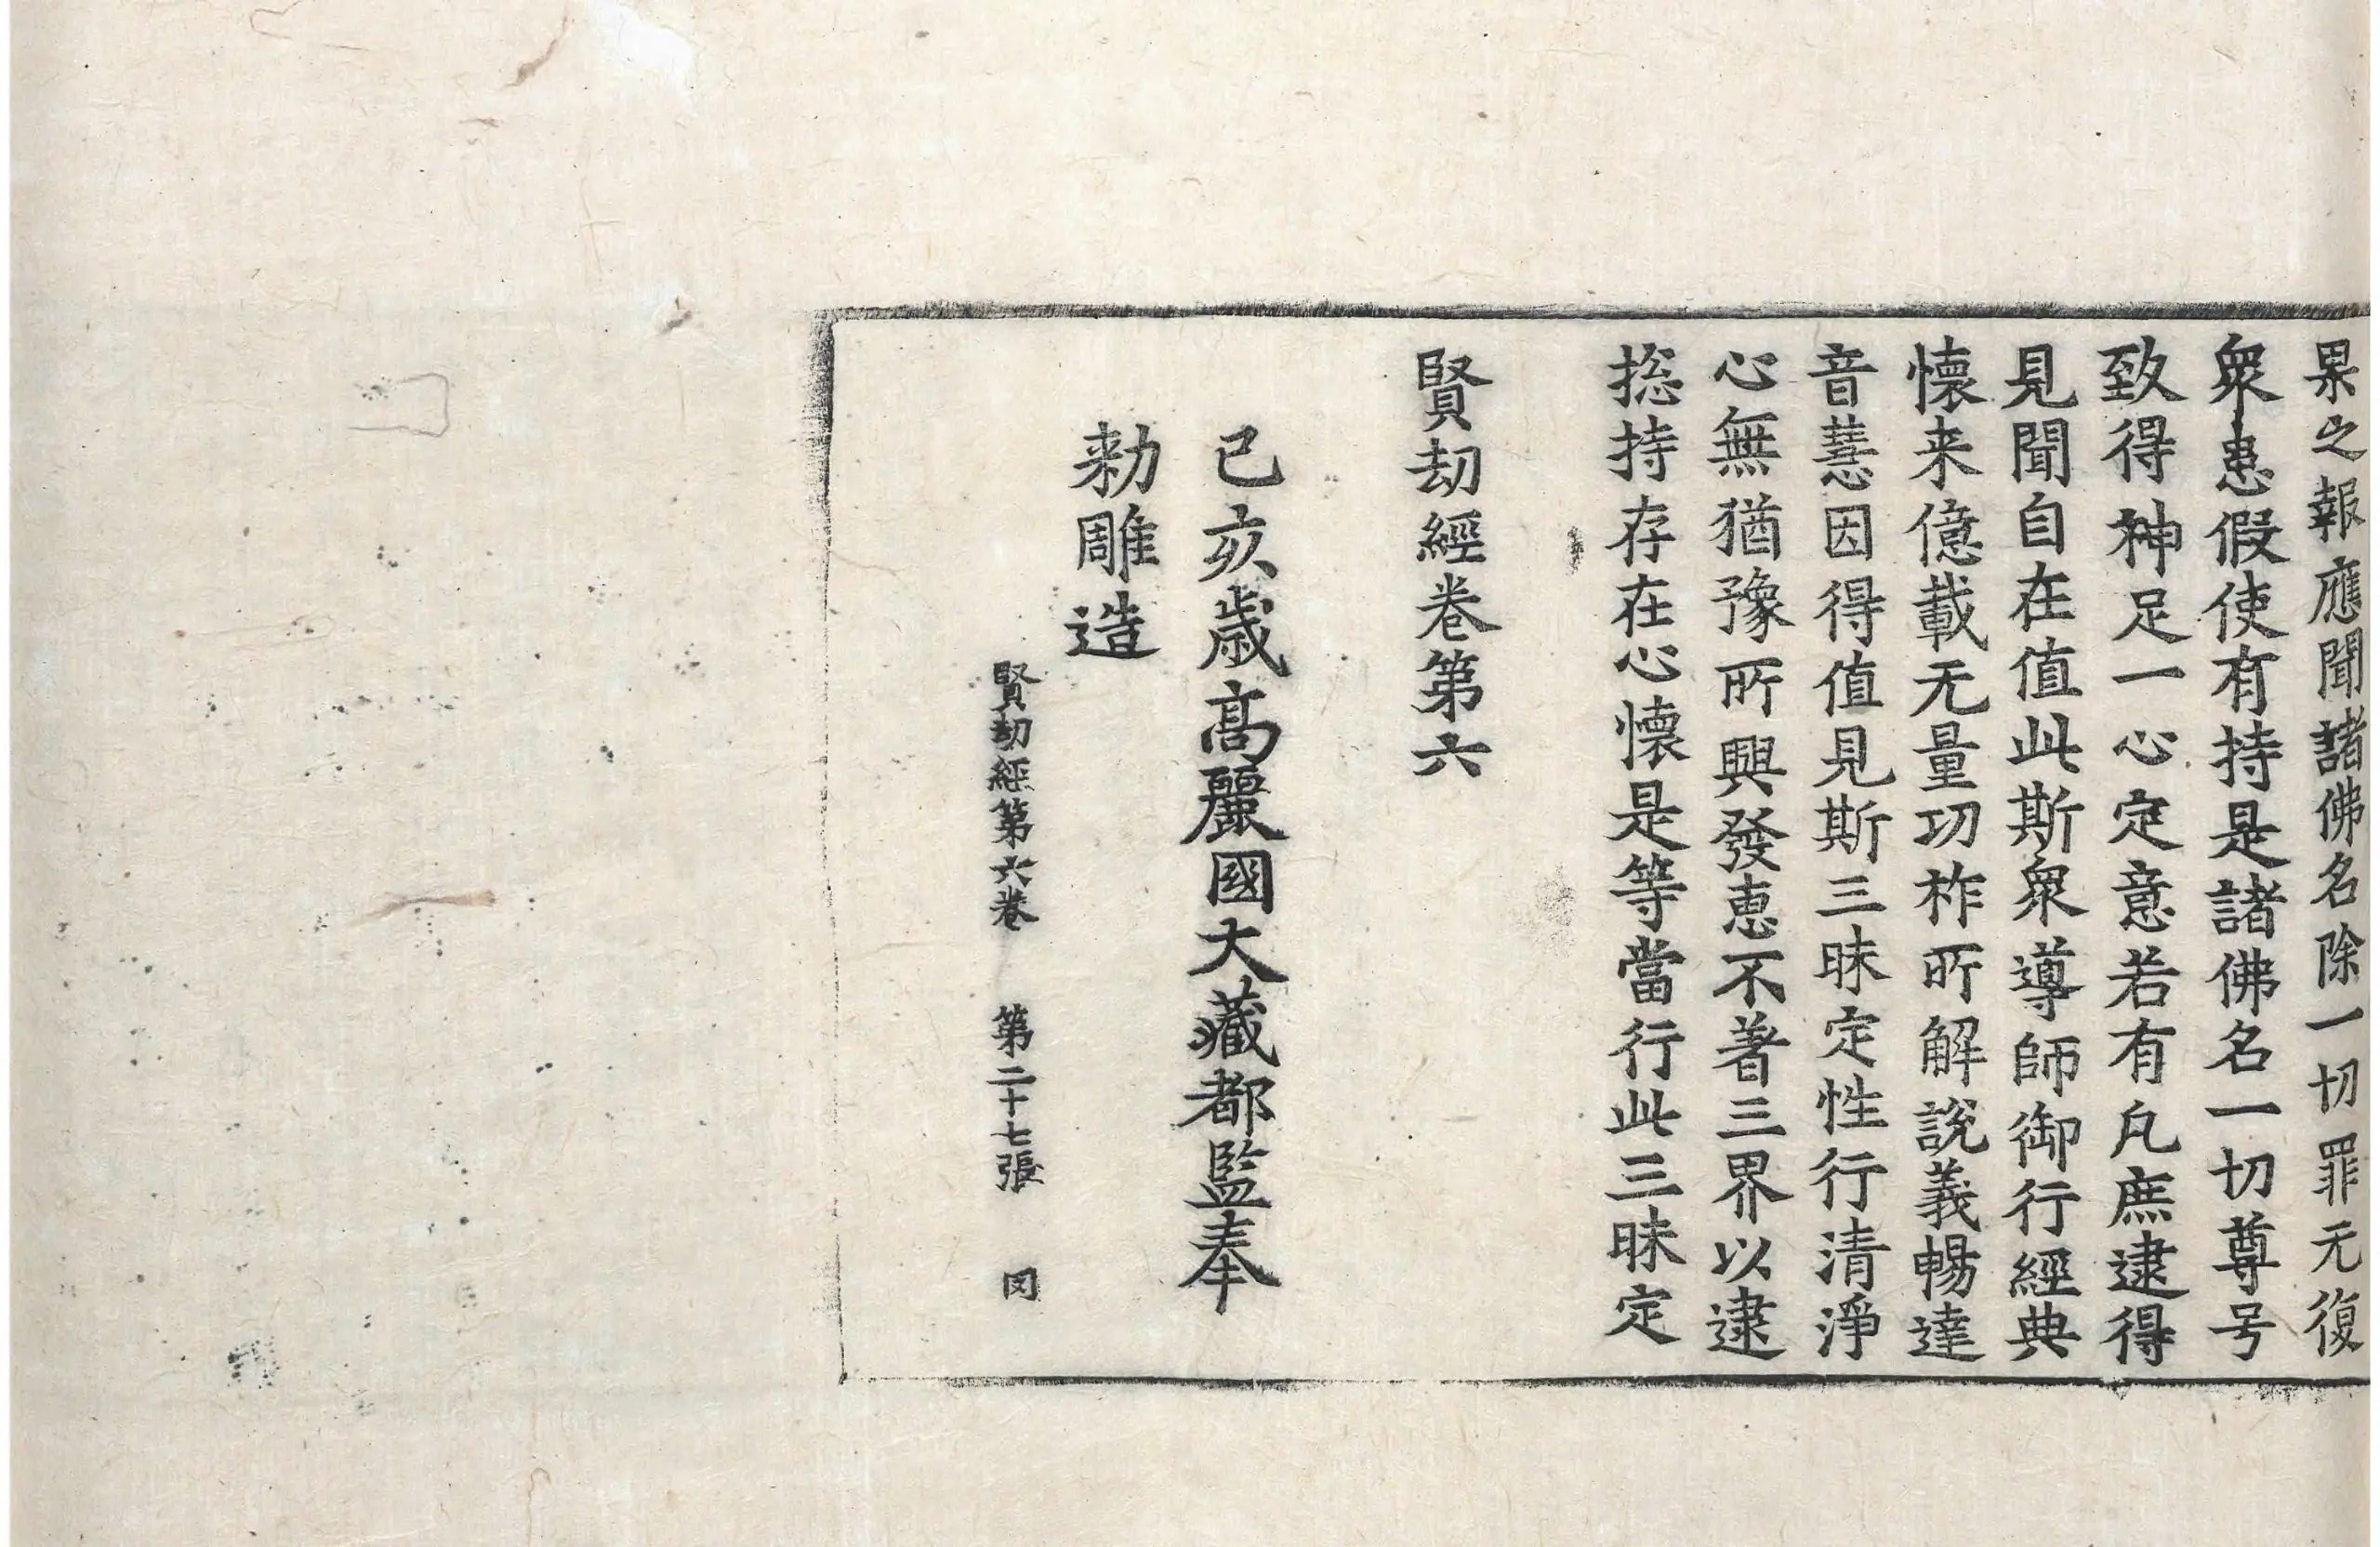 果之報應聞諸佛名除一切罪无復
衆患假使有持是諸佛名一切尊号
致得神足一心定意若有凡庶逮得
見聞自在值此斯衆導師御行經典
懐来億載无量功祚所解說義暢達
音慧因得值見斯三昧定性行清淨
心無猶豫所興發恵不著三界以逮
捴持存在心懐是等當行此三昧定
賢劫經卷第六
己亥歳高麗國大藏都監奉
勑雕造
賢劫經第六卷 第二十七張 罔